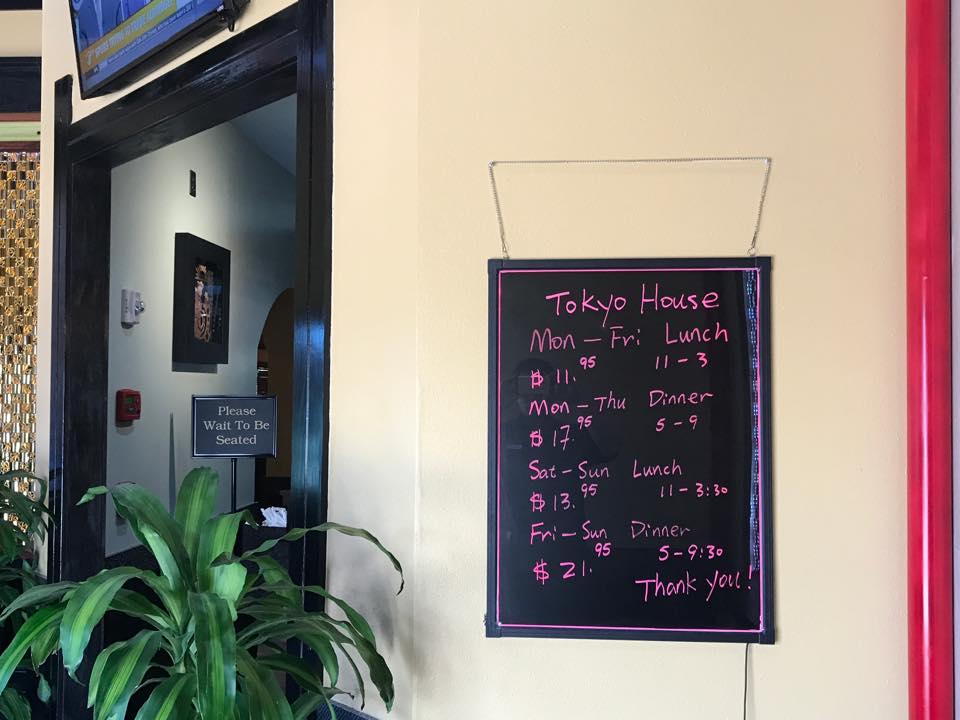 Please
Wait To Be
Seated
Tokyo House
Mon - Fri Lunch
$ 11.95 11 - 3
Mon - Thu Dinner
$ 17.95 5 - 9
Sat - Sun Lunch
$ 13.95 11 - 3:30
Fri - Sun Dinner
$ 21.95 5 - 9:30
Thank you!